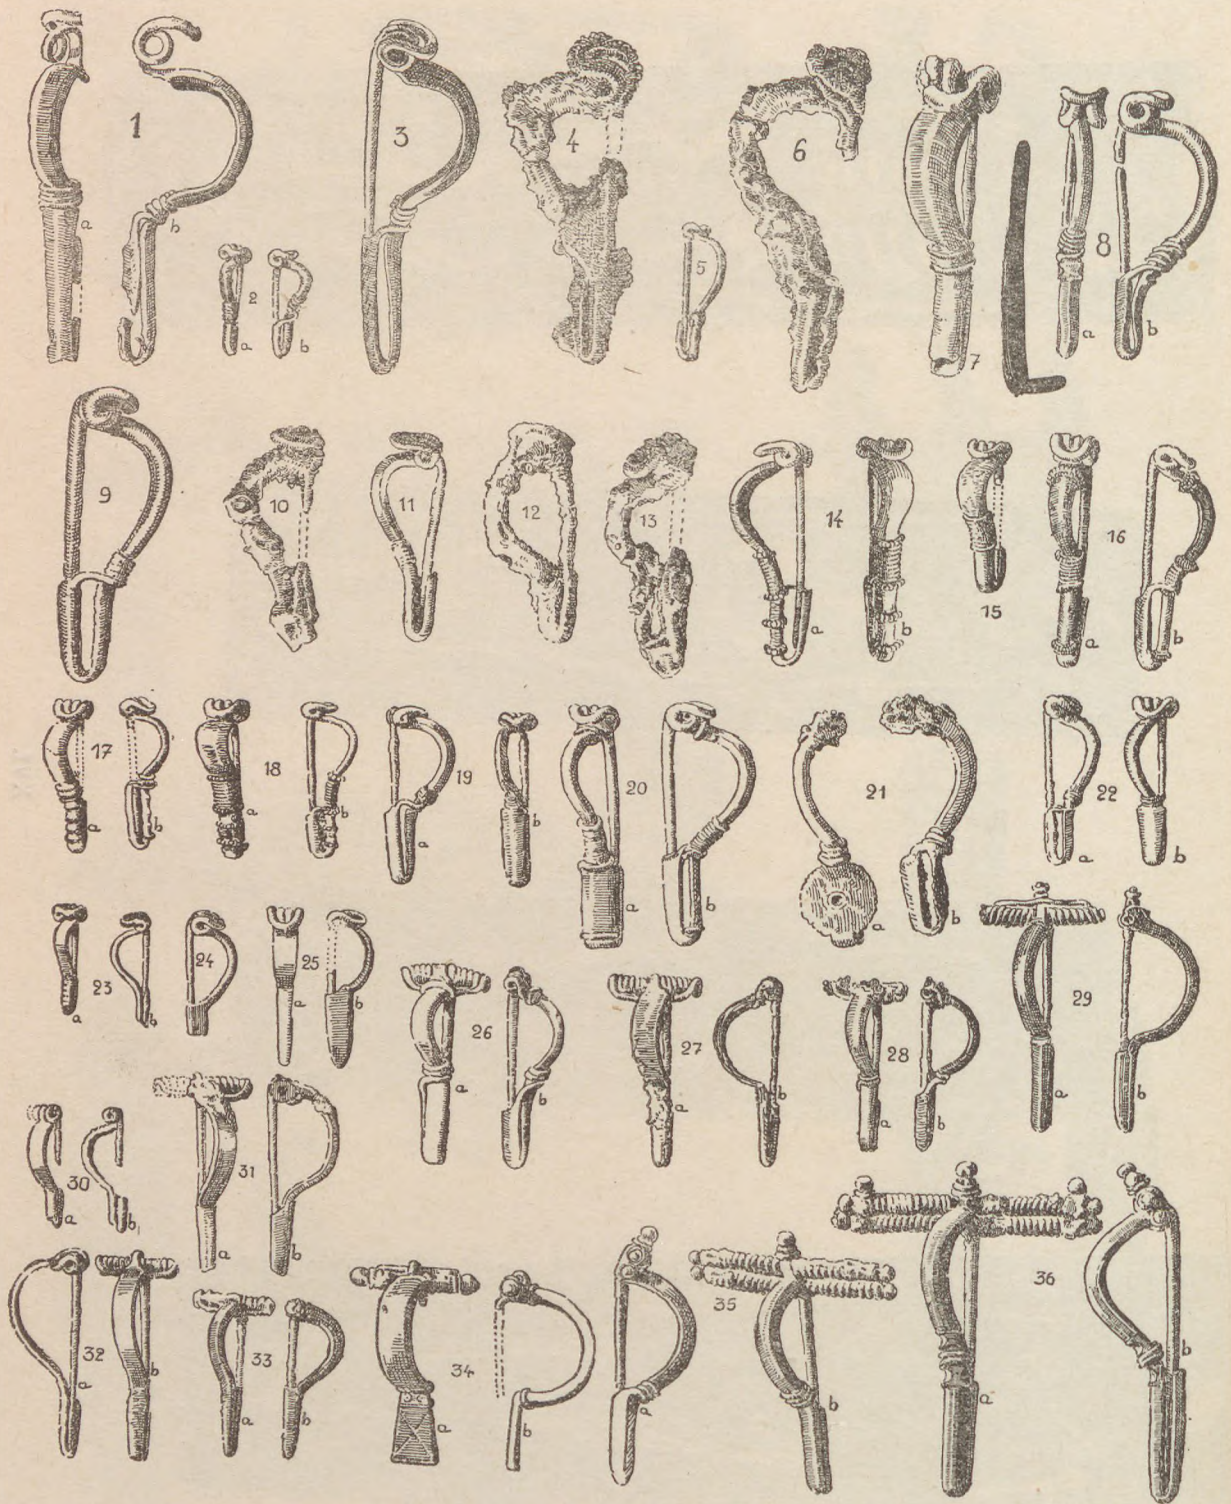 1
a
b
2
a
b
3
4
5
6
7
8
a
b
9
10
11
12
13
14
a
b
15
16
a
b
17
a
b
18
a
b
19
a
b
20
a
b
21
a
b
22
a
b
23
a
b
24
25
a
b
26
a
b
27
a
b
28
a
b
29
a
b
30
a
b
31
a
b
32
a
b
33
a
b
34
a
b
35
a
b
36
a
b